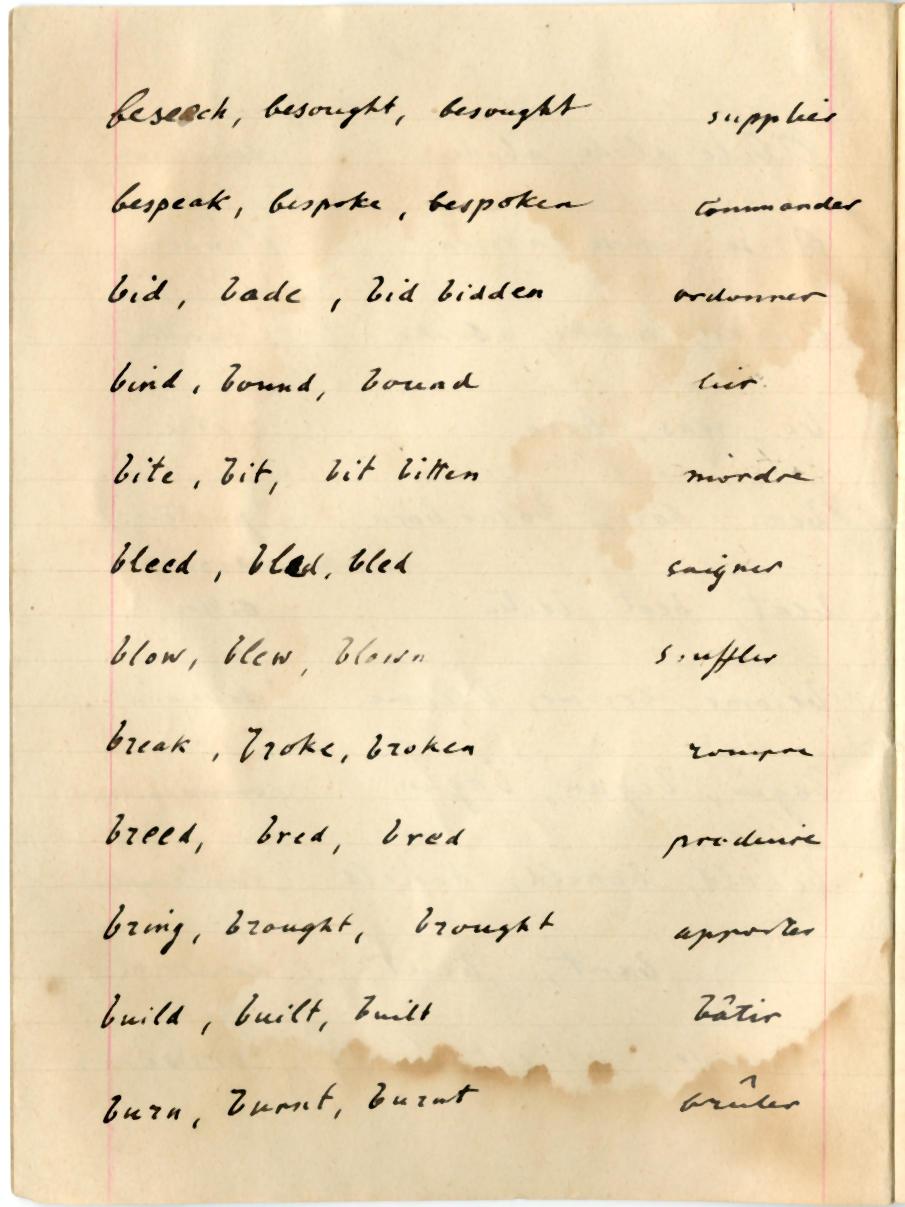 beseech, besought, besought supplier
bespeak, bespoke, bespoken commander
bid, bade, bid bidden ordonner
bind, bound, bound lier
bite, bit, bit bitten mordre
bleed, bled, bled saigner
blow, blew, blown souffler
break, broke, broken rompre
breed, bred, bred produire
bring, brought, brought apporter
build, built, built bâtir
burn, burnt, burnt brûler